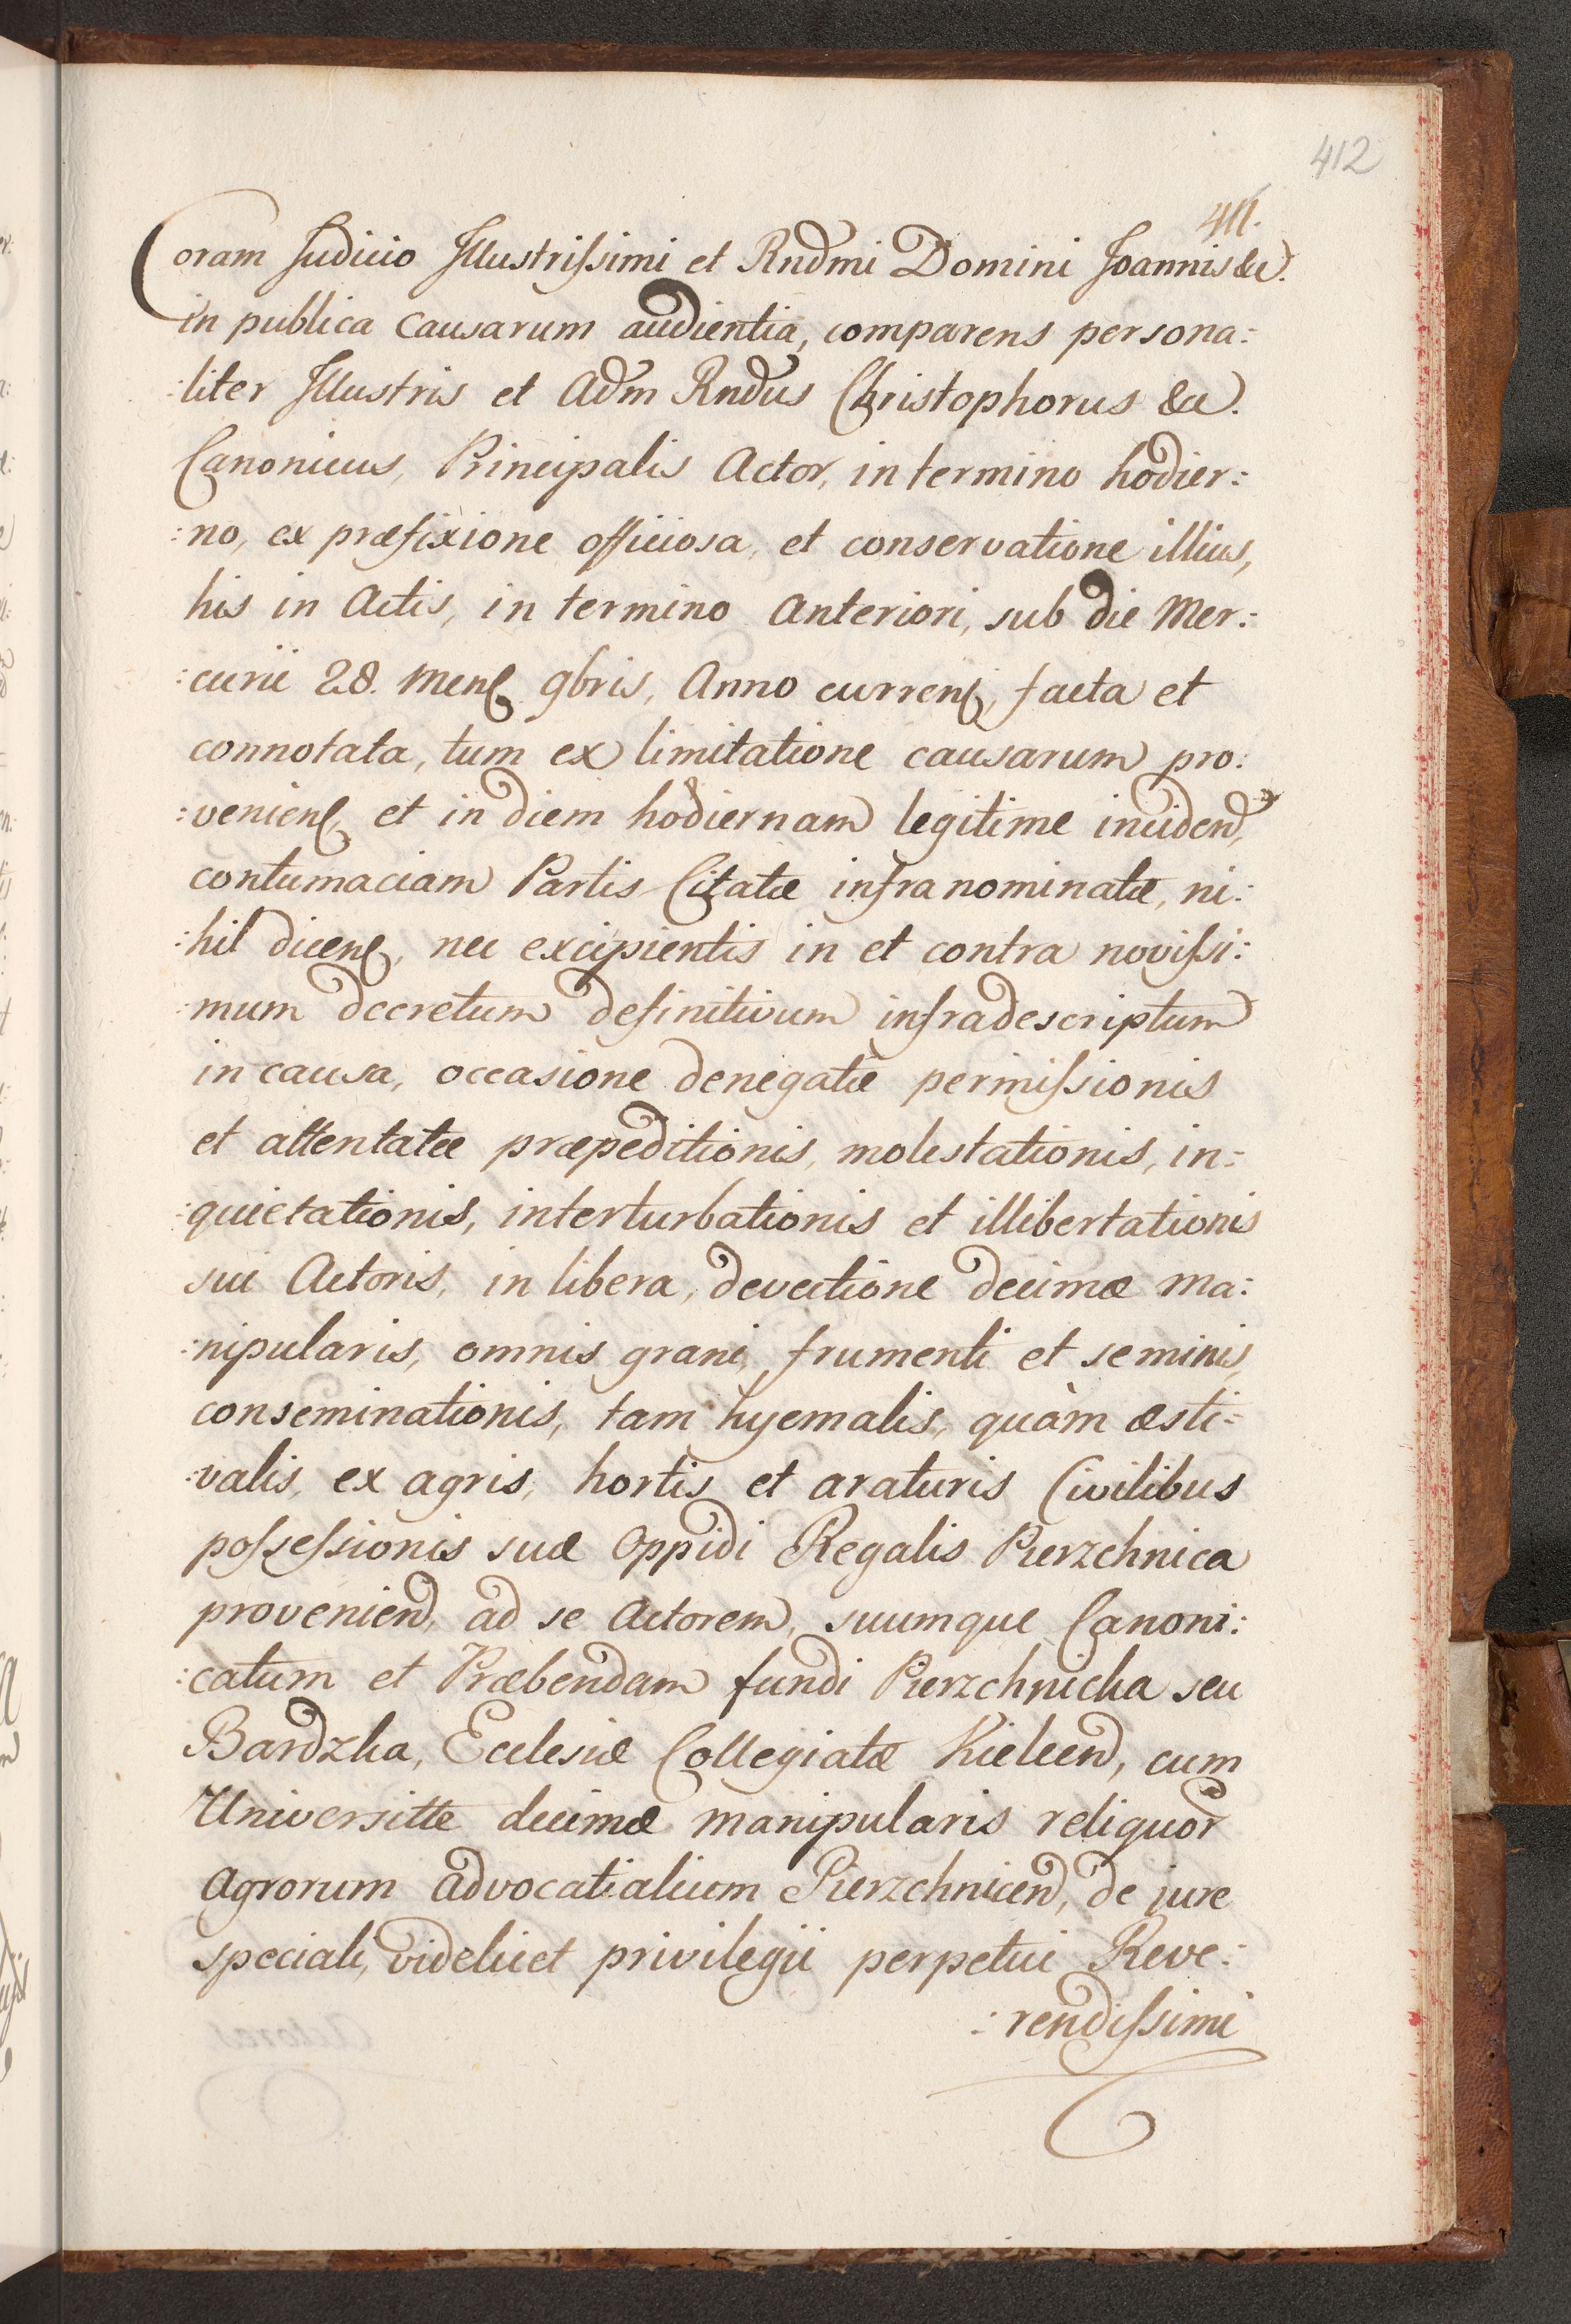 412
411.
Coram Judicio Illustrissimi et Rndmi Domini Joannis &c.
in publica causarum audientia, comparens persona:
:liter Illustris et Adm Rndus Christophorus &c.
Canonicus, Principalis Actor, in termino hodier:
:no, ex præfixione officiosa, et conservatione illius,
his in Actis, in termino anteriori, sub die Mer:
:curii 28. Mens 9bris, Anno currens, facta et
connotata, tum ex limitatione causarum pro:
:veniens, et in diem hodiernam legitime inciden,
contumaciam Partis Citatæ infranominatæ, ni:
:hil dicens, nec excipientis in et contra novissi:
:mum decretum definitivum infradescriptum
in causa, occasione denegatæ permissionis
et attentatæ præpeditionis, molestationis, in:
:quietationis, interturbationis et illibertationis
sui Actoris, in libera, devectione decimæ ma:
:nipularis, omnis grani, frumenti et seminis,
conseminationis, tam hyemalis, quàm æsti:
:valis, ex agris, hortis et araturis Civilibus
possessionis suæ Oppidi Regalis Pierzchnica
provenien, ad se Actorem, suumque Canoni:
:catum et Præbendam fundi Pierzchnicka seu
Bardzka, Ecclesiæ Collegiatæ Kielcen, cum
Universitte decimæ manipularis reliquor
Agrorum advocatialium Pierzchnicen, de jure
speciali, videlicet privilegii perpetui Reve:
:rendissimi